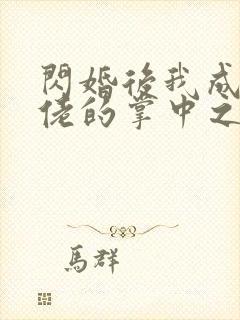 閃婚後我成
佬的掌中之
馬群